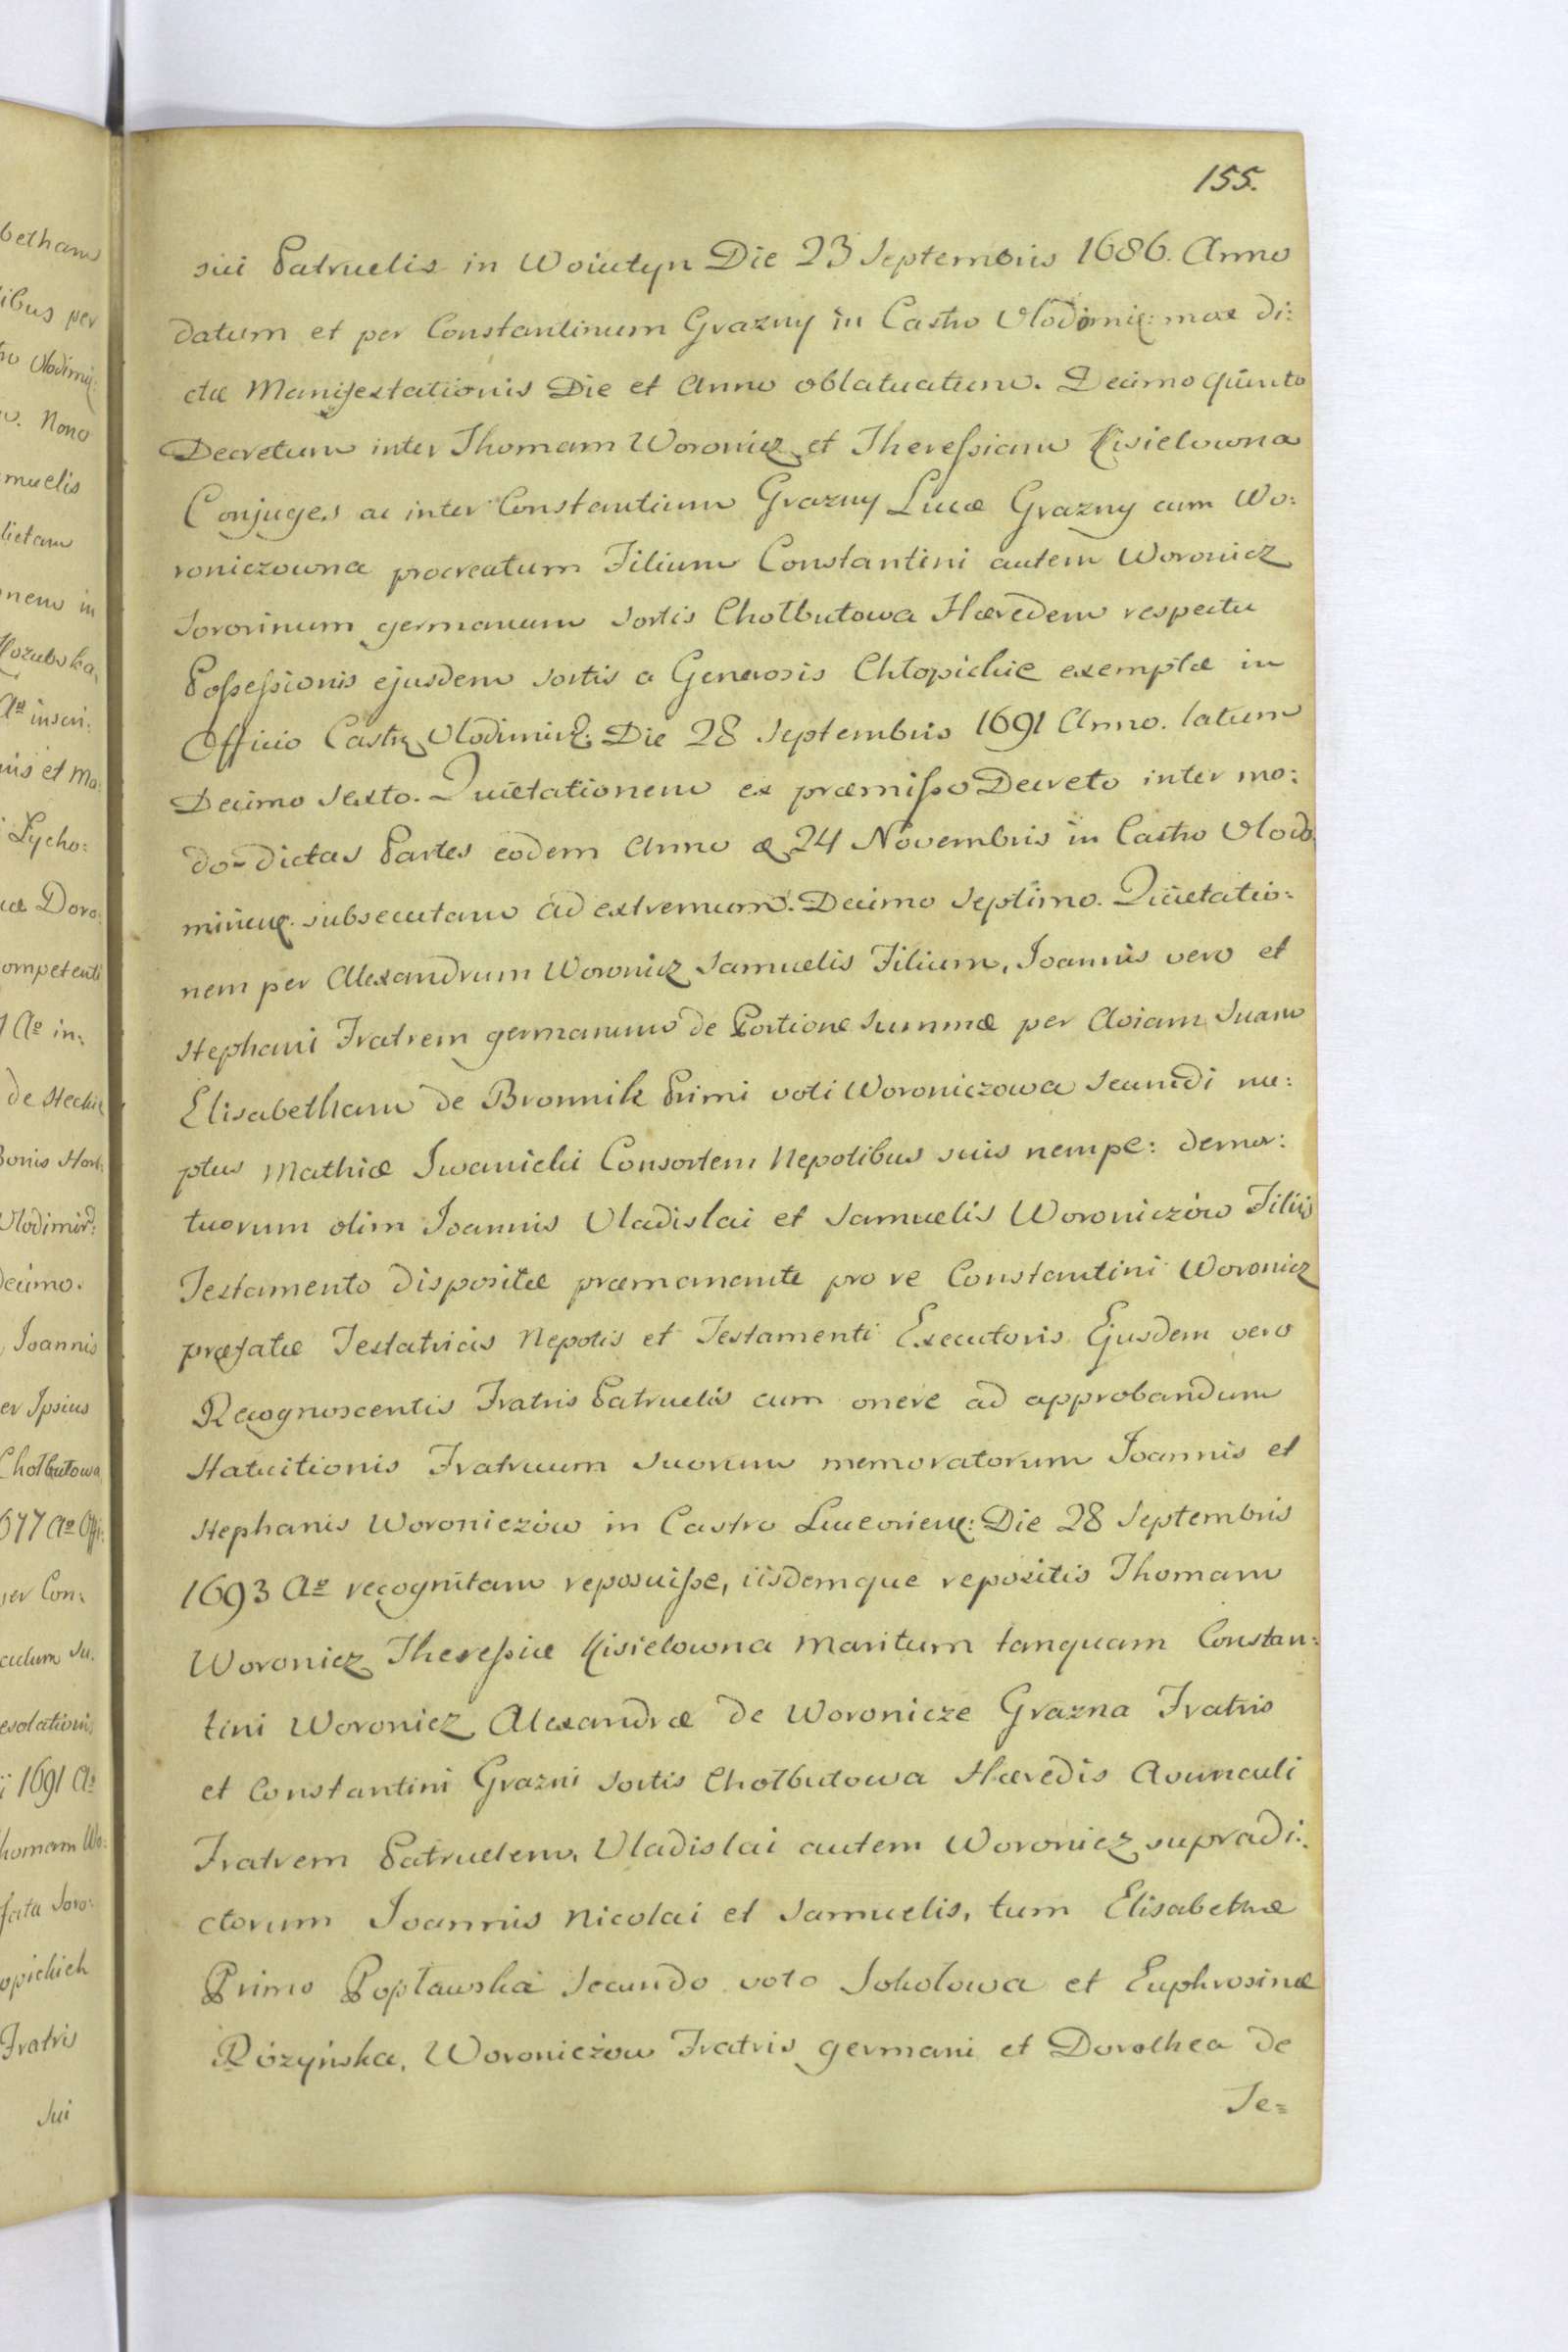 155.
sui Patruelis in Woiutyn Die 23 Septembris 1686. Anno
datum et per Constantinum Grazny in Castro Vlodimir: mox di:
ctæ Manifestationis Die et Anno oblatuatum. Decimo quinto
Decretum inter Thomam Woronicz et Theressiam Kisielowna
Conjuges ac inter Constantium Grazny Lucæ Grazny cum Wo:
roniczowna procreatum Filium Constantini autem Woronicz
Sororinum germanum sortis Chotbutowa Hæredem respectu
Possessionis ejusdem sortis a Generosis Chłopickie exemptæ in
Officio Castr Vlodimir: Die 28 Septembris 1691 Anno. latum
Decimo Sexto. Quietationem ex præmisso Decreto inter mo:
do-dictas Partes eodem Anno & 24 Novembris in Castro Vlodi
mirien: subsecutam ad extremum. Decimo Septimo. Quietatio:
nem per Alexandrum Woronicz Samuelis Filium, Joannis vero et
Stephani Fratrem germanum de Portione Summæ per Aviam Suam
Elisabetham de Bronnik Primi voti Woroniczowa Secundi nu:
ptus Mathiæ Iwanicki Consortem Nepotibus suis nempe: demor:
tuorum olim Joannis Vladislai et Samuelis Woroniczów Filiis
Testamento dispositæ præmanante pro re Constantini Woronicz
præfatæ Testatricis Nepotis et Testamenti Executoris Ejusdem vero
Recognoscentis Fratris Patruelis cum onere ad approbandum
Statuitionis Fratruum Suorum memoratorum Joannis et
Stephanis Woroniczów in Castro Luceorien: Die 28 Septembris
1693 Aº recognitam reposuisse, iisdemque repositis Thomam
Woronicz Theressiæ Kisielowna Maritum tanquam Constan:
tini Woronicz Alexandræ de Woronicze Grazna Fratris
et Constantini Grazni sortis Chotbutowa Hæredis Avunculi
Fratrem Patruelem, Vladislai autem Woronicz supradi:
ctorum Joannis Nicolai et Samuelis, tum Elisabethæ
Primo Popławska Secundo voto Sokołowa et Euphrosinæ
Rózyńska, Woroniczow Fratris germani et Dorothea de
Je=